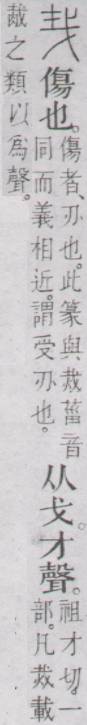 𢦏傷也。傷者、刅也。此篆與烖葘音同而義相近。謂受刅也。从戈。才聲。祖才切。一部。凡烖載
之類以爲聲。